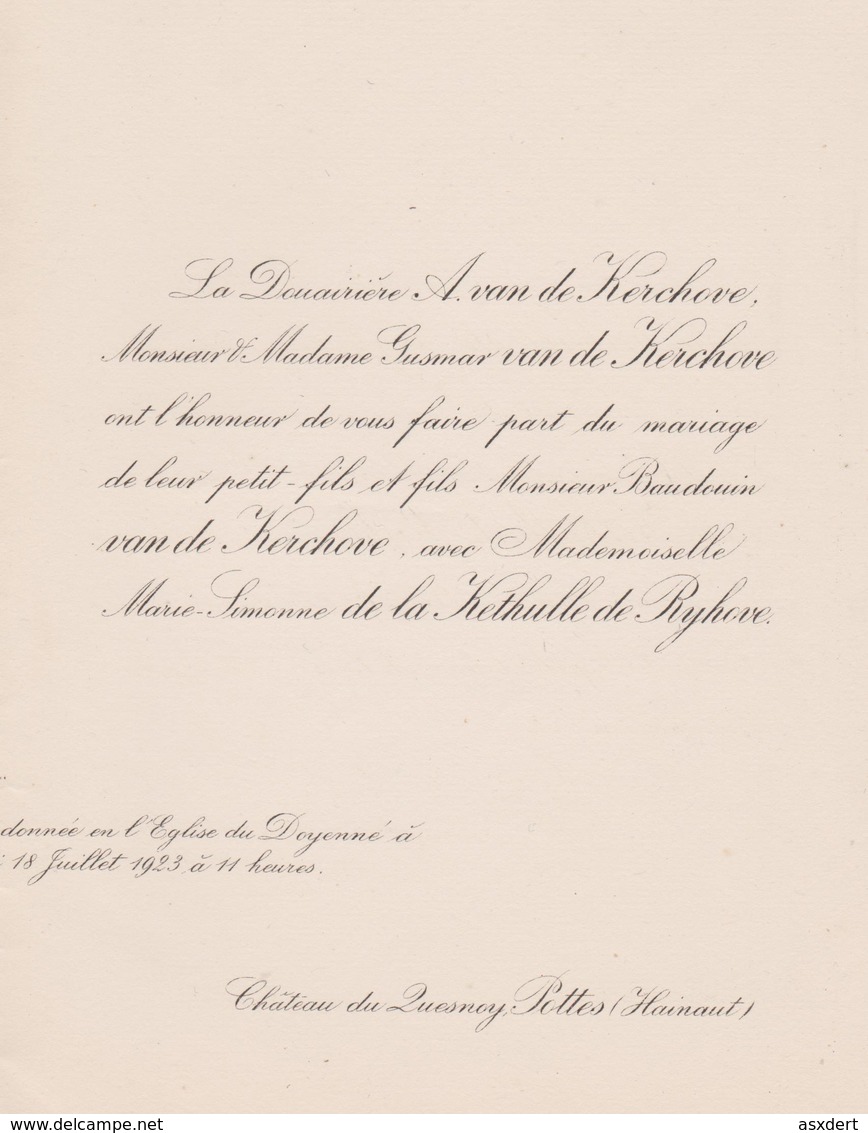 La Douairière A. van de Kerchove,
Monsieur & Madame Gusmar van de Kerchove
ont l'honneur de vous faire part du mariage
de leur petit-fils et fils Monsieur Baudouin
van de Kerchove, avec Mademoiselle
Marie-Simonne de la Kethulle de Ryhove.
donnée en l'Eglise du Doyenné à
18 Juillet 1923, à 11 heures.
Château du Quesnoy, Pottes (Hainaut)
www.delcampe.net
asxdert